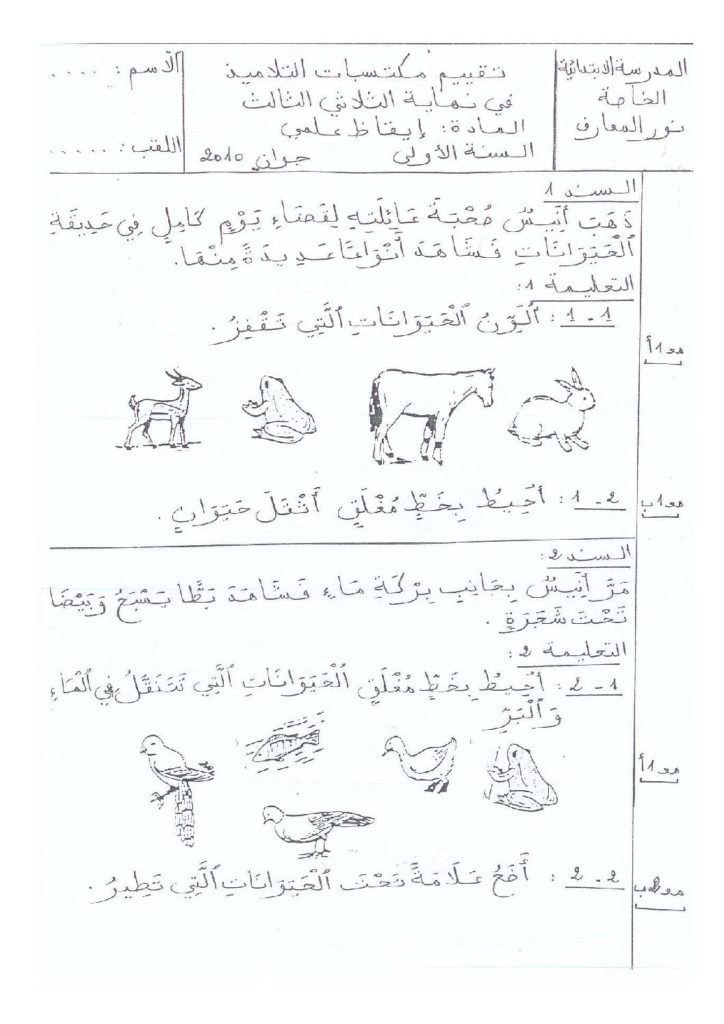 المدرسة الابتدائية
الخاصة
نور المعارف
تقييم مكتسبات التلاميذ
في نهاية الثلاثي الثالث
المادة: إيقاظ علمي
السنة الأولى جوان 2010
الاسم: ....
اللقب: .....
السند 1
ذَهَبَ أَنِيسٌ صُحْبَةَ عَائِلَتِهِ لِقَضَاءِ يَوْمٍ كَامِلٍ فِي حَدِيقَةِ
الْحَيَوَانَاتِ فَشَاهَدَ أَنْوَاعًا عَدِيدَةً مِنْهَا.
التعليمة 1:
1-1: أُلَوِّنُ الْحَيَوَانَاتِ الَّتِي تَقْفِزُ.
مع 1أ
1-2: أُحِيطُ بِخَطٍّ مُغْلَقٍ أَثْقَلَ حَيَوَانٍ.
مع 1ب
السند 2:
مَرَّ أَنِيسٌ بِجَانِبِ بِرْكَةِ مَاءٍ فَشَاهَدَ بَطًّا يَسْبَحُ وَبَيْضًا
تَحْتَ شَجَرَةٍ.
التعليمة 2:
2-1: أُحِيطُ بِخَطٍّ مُغْلَقٍ الْحَيَوَانَاتِ الَّتِي تَتَنَقَّلُ فِي الْمَاءِ
وَالْبَرِّ
مع 1أ
2-2: أَضَعُ عَلَامَةً تَحْتَ الْحَيَوَانَاتِ الَّتِي تَطِيرُ.
مع 2ب